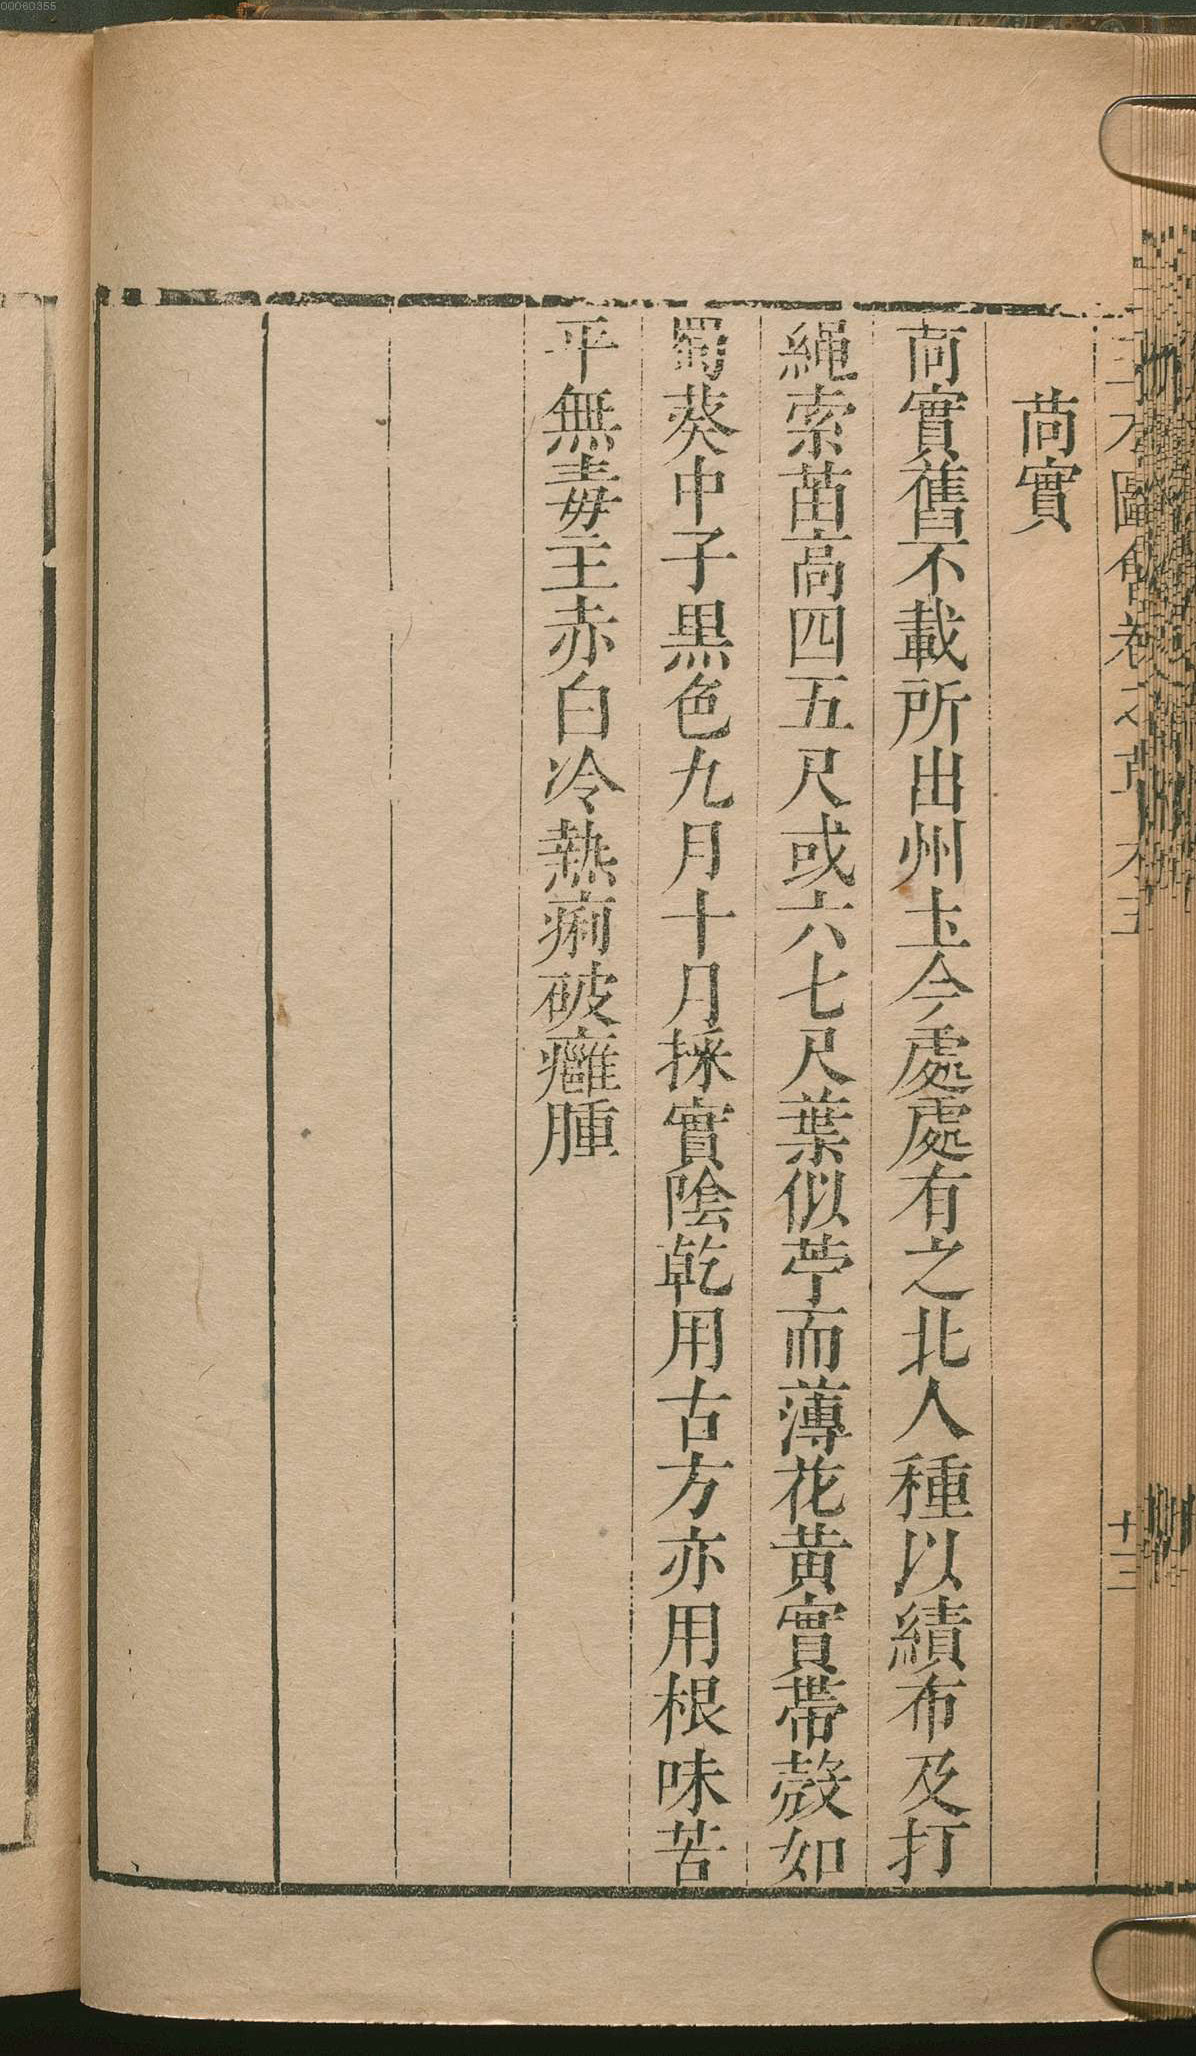 00060355
三才圖會卷之草木三
十三
莔實
莔實舊不載所出州土今處處有之北人種以績布及打
繩索苗高四五尺或六七尺葉似苧而薄花黃實帶殼如
蜀葵中子黑色九月十月採實陰乾用古方亦用根味苦
平無毒主赤白冷熱痢破癰腫